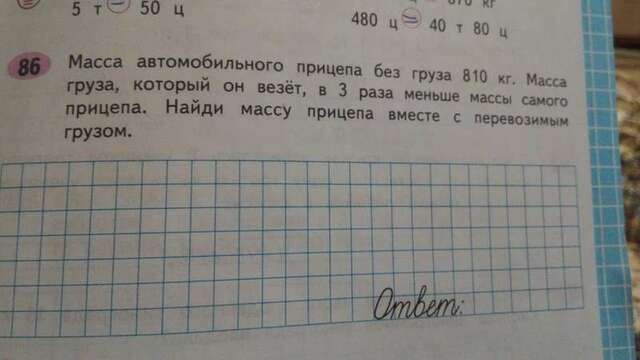 870 кг
5 т = 50 ц
480 ц = 40 т 80 ц
86 Масса автомобильного прицепа без груза 810 кг. Масса
груза, который он везёт, в 3 раза меньше массы самого
прицепа. Найди массу прицепа вместе с перевозимым
грузом.
Ответ: